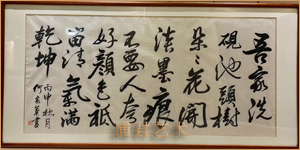 吾家洗
硯池頭樹
朶朶花開
淡墨痕
不要人夸
好顏色祗
留清氣滿
乾坤
丙申秋月